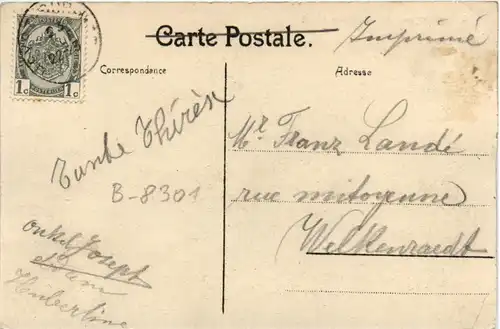 Carte Postale.
Imprimé
Correspondance
Adresse
1c 1c
Tante Thérèse
B-8301
Onkel Joseph
Hubertine
Mr Franz Landé
rue mitoyenne
Welkenraedt